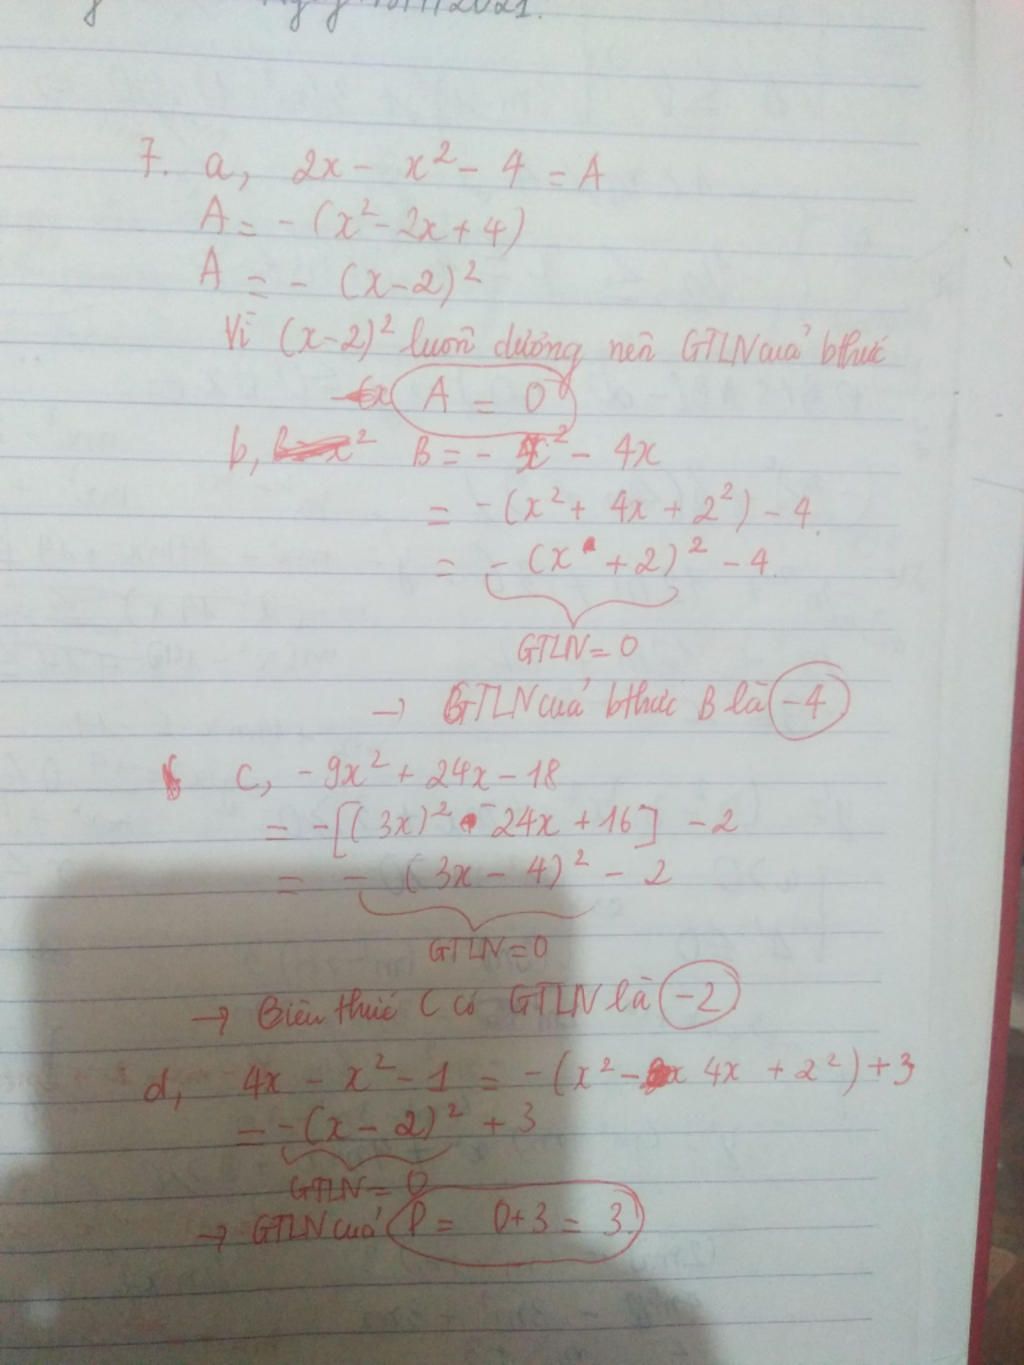 2021.
7. a, 2x - x² - 4 = A
A = - (x² - 2x + 4)
A = - (x - 2)²
Vì (x-2)² luôn dương nên GTLN của bthức
A = 0
b, B = - x² - 4x
= -(x² + 4x + 2²) - 4
= - (x + 2)² - 4
GTLN = 0
→ GTLN của bthức B là -4
c, -9x² + 24x - 18
= -[(3x)² - 24x + 16] - 2
= - (3x - 4)² - 2
GTLN = 0
→ Biểu thức C có GTLN là -2
d, 4x - x² - 1 = -(x² - 4x + 2²) + 3
= -(x - 2)² + 3
GTLN = 0
→ GTLN của P = 0+3 = 3.